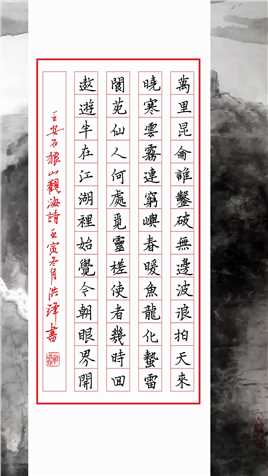 萬里昆侖誰鑿破無邊波浪拍天來
曉寒雲霧連窮嶼春暖魚龍化蟄雷
閬苑仙人何處覓靈槎使者幾時回
遨遊半在江湖裡始覺今朝眼界開
王安石狼山觀海詩壬寅冬月洪書